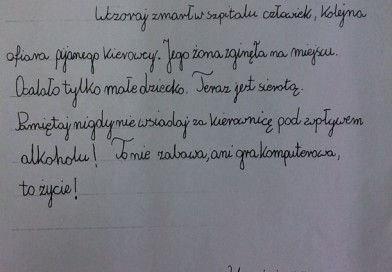 Wczoraj zmarł w szpitalu człowiek, kolejna
ofiara pijanego kierowcy. Jego żona zginęła na miejscu.
Ocalało tylko małe dziecko. Teraz jest sierotą.
Pamiętaj nigdy nie wsiadaj za kierownicę pod wpływem
alkoholu! To nie zabawa, ani gra komputerowa,
to życie!